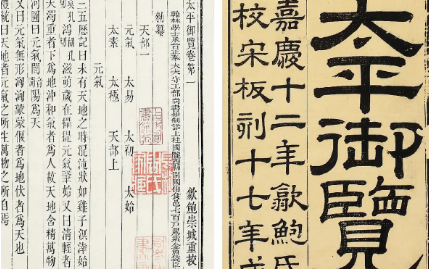 太平御覽
嘉慶十二年歙鮑氏
校宋板刻十七年成
歙鮑崇城重校
太平御覽卷第一
翰林學士承旨正奉大夫守工部尚書知制誥上柱國隴西縣開國伯食邑七百戶賜紫金魚袋臣
敕纂
天部一
元氣 太易 太初 太始
太素 太極 天部上
元氣
三五歷記曰未有天地之時混沌狀如雞子溟涬始
濛鴻滋萌歲在攝提元氣肇始又曰清輕者
天濁重者下為地沖和氣者為人故天地含精萬物
河圖曰元氣闓陽為天
又曰元氣無形洶洶蒙蒙偃者為地伏者為天也
禮統曰天地者元氣之所生萬物之所自焉